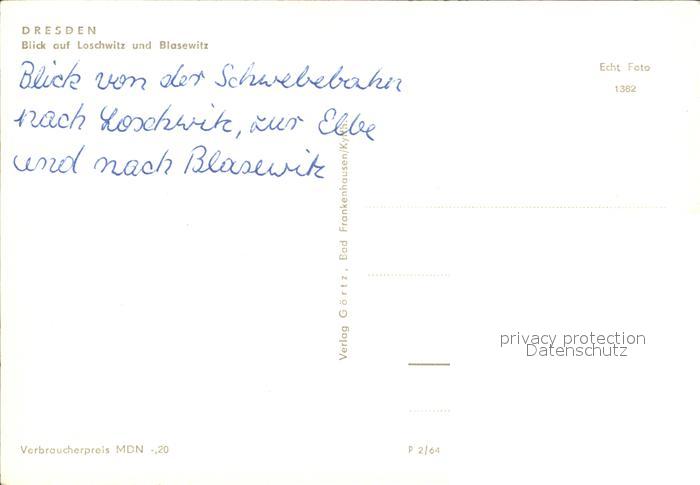 DRESDEN
Blick auf Loschwitz und Blasewitz
Blick von der Schwebebahn
nach Loschwitz, zur Elbe
und nach Blasewitz
Echt Foto
1362
Verlag Görtz, Bad Frankenhausen/Kyffh.
privacy protection
Datenschutz
Verbraucherpreis MDN -,20
P 2/64